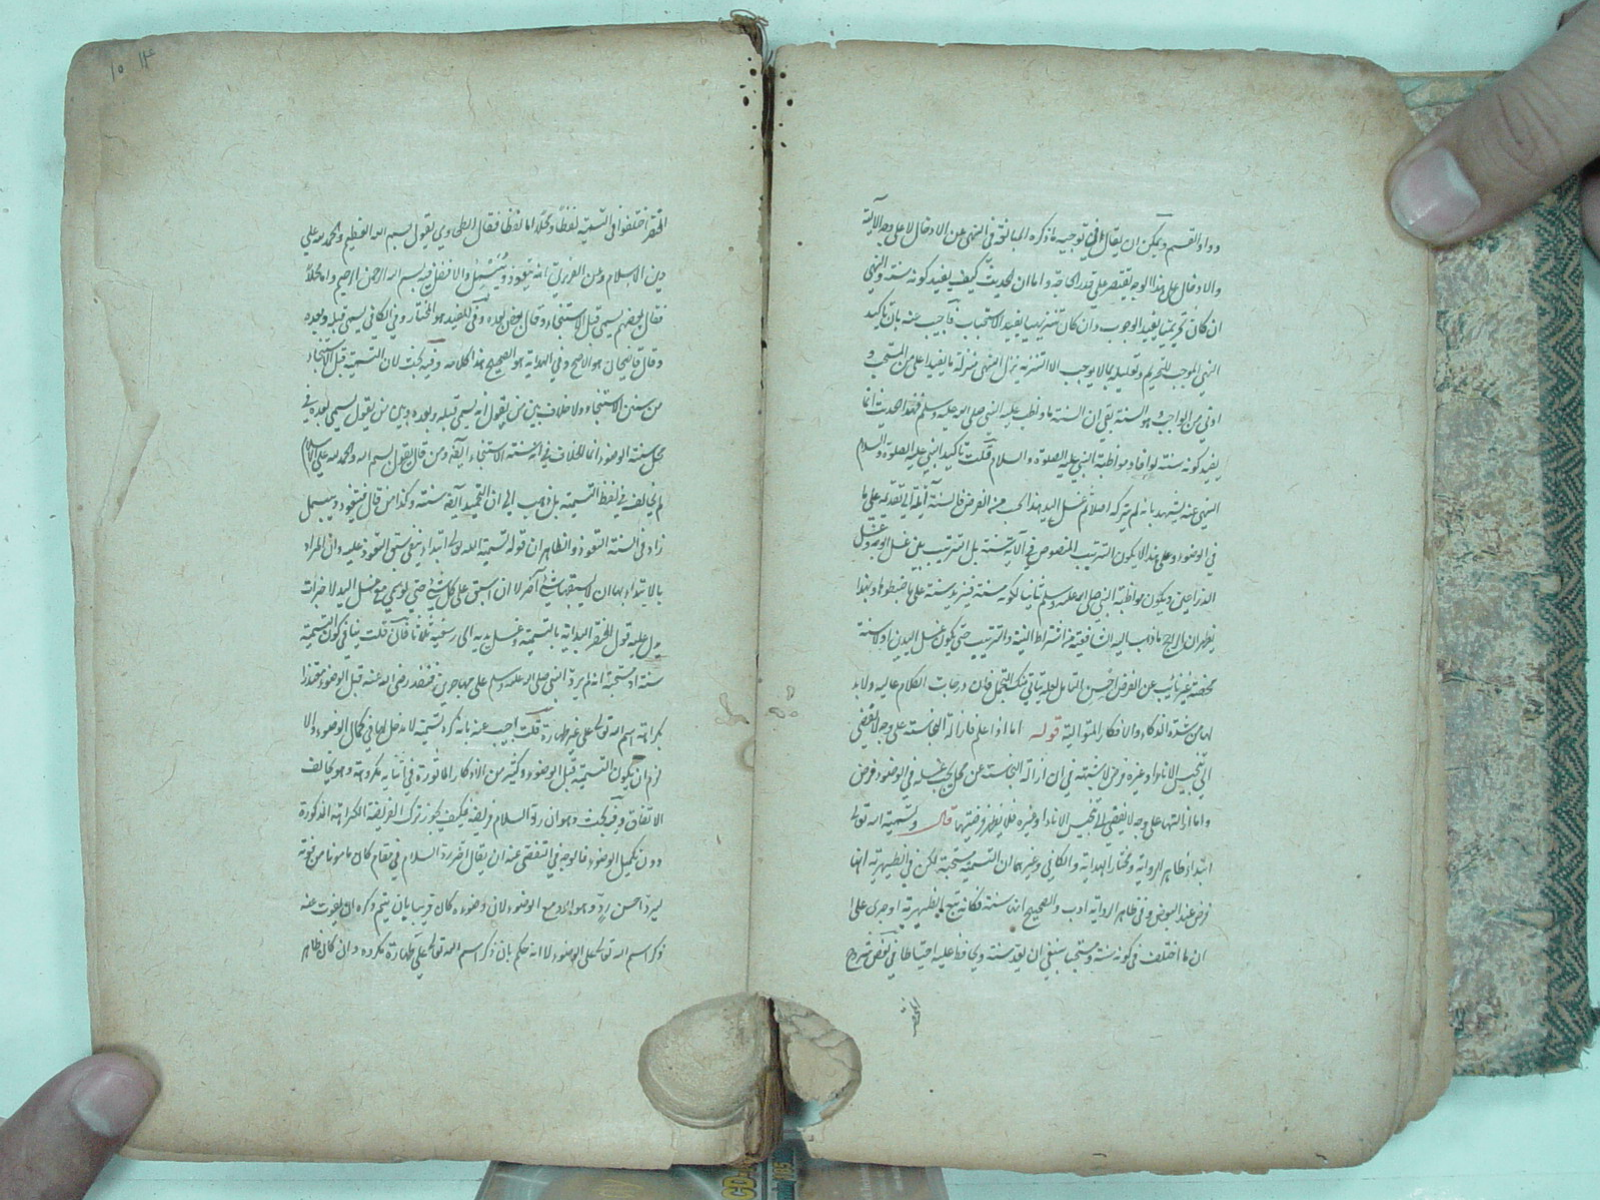 وواو القسم ويمكن ان يقال في توجيه ما ذكره المبالغة في النهى عن الادخال لا على وجه الآلة
والادخال على هذا الوجه يقتصر على قدر الحاجة واما ان الحديث كيف يفيد كونه سنة والنهى
ان كان تحريميا يفيد الوجوب وان كان تنزيهيا يفيد الاستحباب فاجيب عنه بان تاكيد
النهى الموجب للتحريم وتعليله بما لا يوجب الا التنزيه ينزل النهى منزلة ما يفيد اعلى من المستحب و
ادنى من الواجب وهو السنة بقى ان السنة ما واظب عليه النبي صلى الله عليه وسلم فهذا الحديث انما
يفيد كونه سنة لو افاد مواظبة النبي عليه الصلوة والسلام قلت تاكيد النبي عليه الصلوة والسلام
النهى عنه يشهد بانه لم يتركه اصلا ثم غسل اليد هذا الحسب من الفرض فالسنة آيلة الى تقديمه على ما
في الوضوء وعلى هذا لا يكون الترتيب المنصوص في الآية سنة بل الترتيب بين غسل الوجه وغسل
الذراعين ويكون مواظبة النبي صلى الله عليه وسلم ثانيا لكونه سنة
يظهر ان الراجح ما ذهب اليه الشافعية من اشتراط النية والترتيب حتى يكون غسل اليدين اولا سنة
محضة غير نائب عن الفرض احسن التامل لعله يتاتى منك التحمل فان درجات الكلام عالية ولا بد
لها من شدة الذكاء والافكار المتوالية قوله اما اذا علم فازالة النجاسة على وجه لا يفضي
الى تنجيس الاناء او غيره فرض لا شبهة في ان ازالة النجاسة عن محل يجب غسله في الوضوء فرض
واما ازالتها على وجه لا يفضي الى تنجيس الاناء او غيره فلا يظهر فرضيتها قال وتسمية الله تعالى
ابتداء ظاهر الرواية ومختار الهداية والكافي وغيرهما ان التسمية مستحبة لكن في الظهيرية انها
فرض عند البعض وفي ظاهر الرواية ادب والصحيح انه سنة فكانه تبع الظهيرية او جرى على
ان ما اختلف في كونه سنة ومستحب ينبغي ان يعد سنة ويحافظ عليه احتياطا في بعض شروح
المختصر
١٤ ١٥
المختصر اختلفوا في التسمية لفظا ومحلا اما لفظا فقال الطحاوي يقول بسم الله العظيم والحمد لله على
دين الاسلام وعن الغزنوي انه يتعوذ ويبسمل والافضل فيه بسم الله الرحمن الرحيم واما محلا
فقال بعضهم يسمى قبل الاستنجاء وقال بعض بعده وفي المفيد هو المختار وفي الكافي يسمى قبله وبعده
وقال قاضيخان هو الاصح وفي الهداية هو الصحيح هذا كلامه وفيه بحث لان التسمية قبل الاستنجاء
من سنن الاستنجاء ولا خلاف بين من يقول انه يسمى قبله وبعده وبين من يقول يسمى بعده في
محل سنة الوضوء انما الخلاف في انه سنة الاستنجاء ايضا ومن قال يقول بسم الله والحمد لله على الاسلام
لم يخالف في لفظ التسمية بل ذهب الى ان التحميد ايضا سنة وكذا من قال يتعوذ ويبسمل
زاد في السنة التعوذ والظاهر ان قوله تسمية الله تعالى ابتداء ينفي سبق التعوذ عليه وان المراد
بالابتداء بها ان لا يسبقها شئ آخر لا ان تسبق على كل شئ حتى لو سمى مع غسل اليد لاخبرات
يدل عليه قول المختصر البداية بالتسمية وغسل يديه الى رسغيه ثلاثا فان قلت ينافي كون التسمية
سنة او مستحبة انه لم يرد النبي صلى الله عليه وسلم على مهاجر بن قنفذ رضي الله عنه قبل الوضوء معتذرا
بكراهة اسم الله تعالى على غير طهارة قلت اجيب عنه بانه كره تسمية لا مدخل لها في كمال الوضوء والا
لزم ان يكون التسمية قبل الوضوء وكثير من الاذكار الماثورة في اثنائه مكروهة وهو يخالف
الاتفاق وفيه بحث وهو ان رد السلام فريضة فكيف يجوز ترك الفريضة لكراهة المذكورة
دون تكميل الوضوء فالوجه في التقصي عنه ان يقال اخر رد السلام في مقام كان مامونا من فوته
ليرد احسن رد وهو الرد مع الوضوء لان وضوءه كان قريبا بان يتم وكره ان يفوت عنه
ذكر اسم الله تعالى على الوضوء لا انه حكم بان ذكر اسم الله تعالى على غير طهارة مكروه وان كان ظاهر